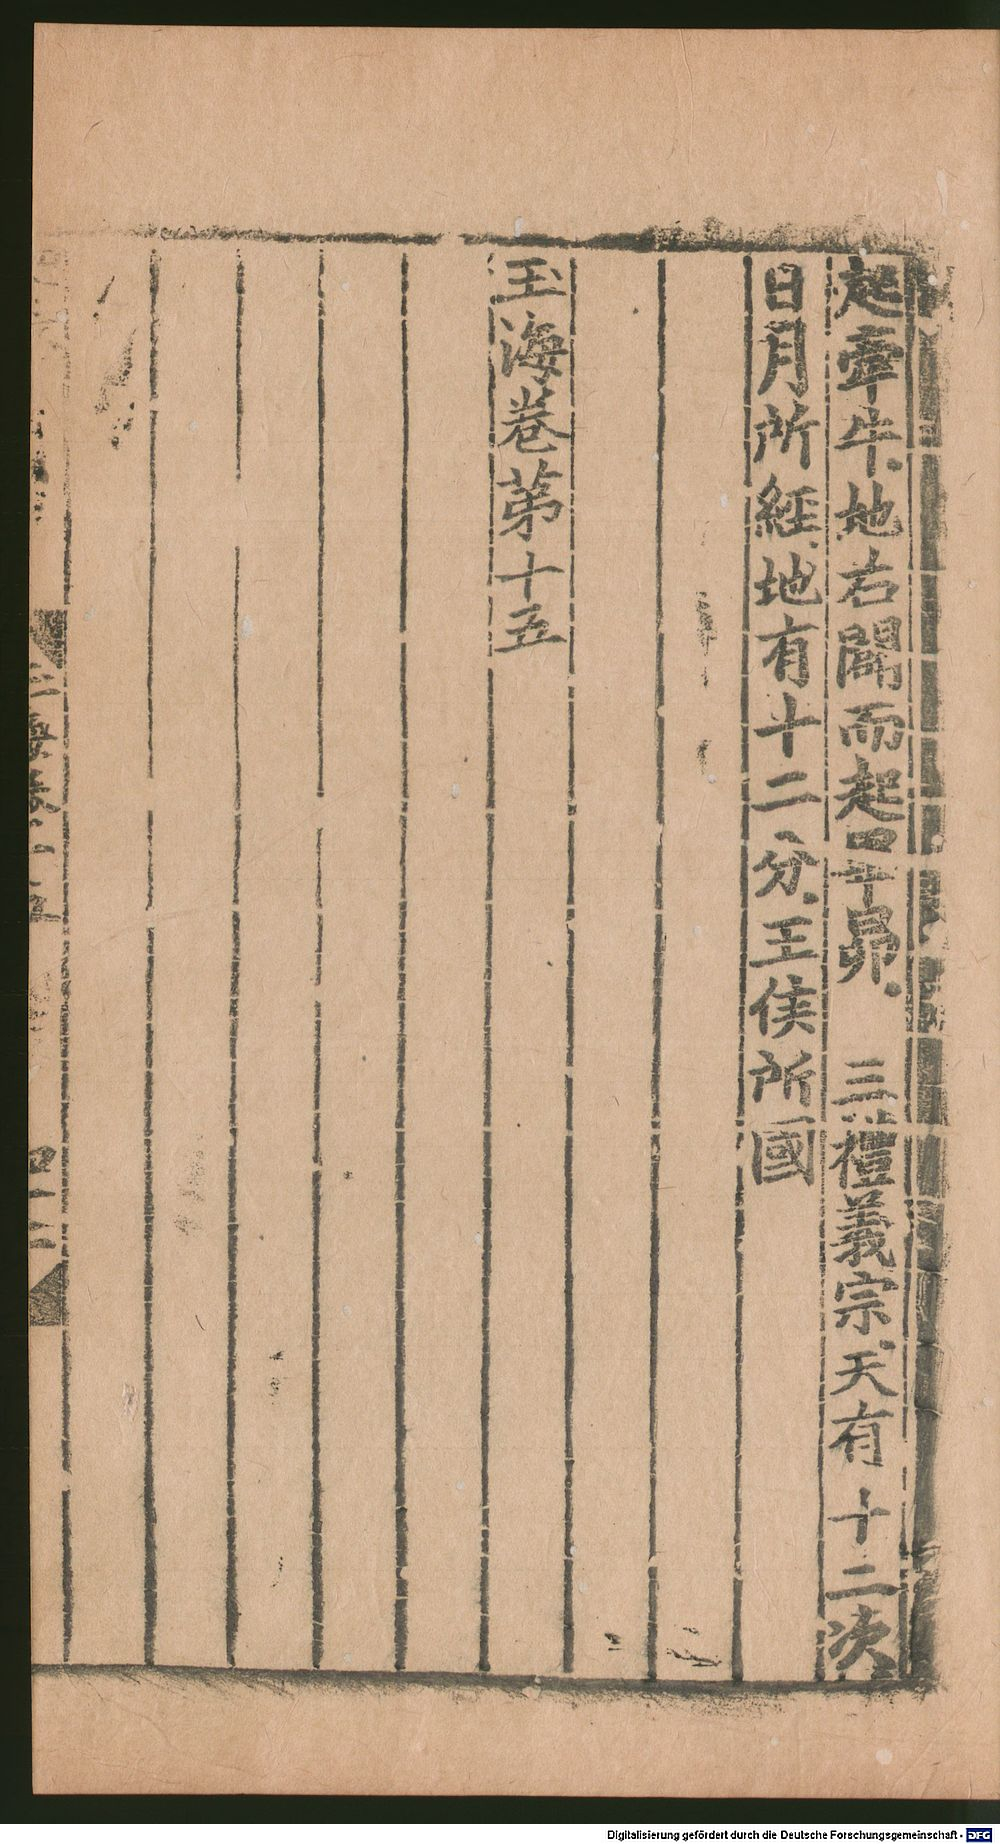 起牽牛地右闢而起畢昴　三禮義宗天有十二次
日月所經地有十二分王侯所國
玉海卷第十五
Digitalisierung gefördert durch die Deutsche Forschungsgemeinschaft - DFG